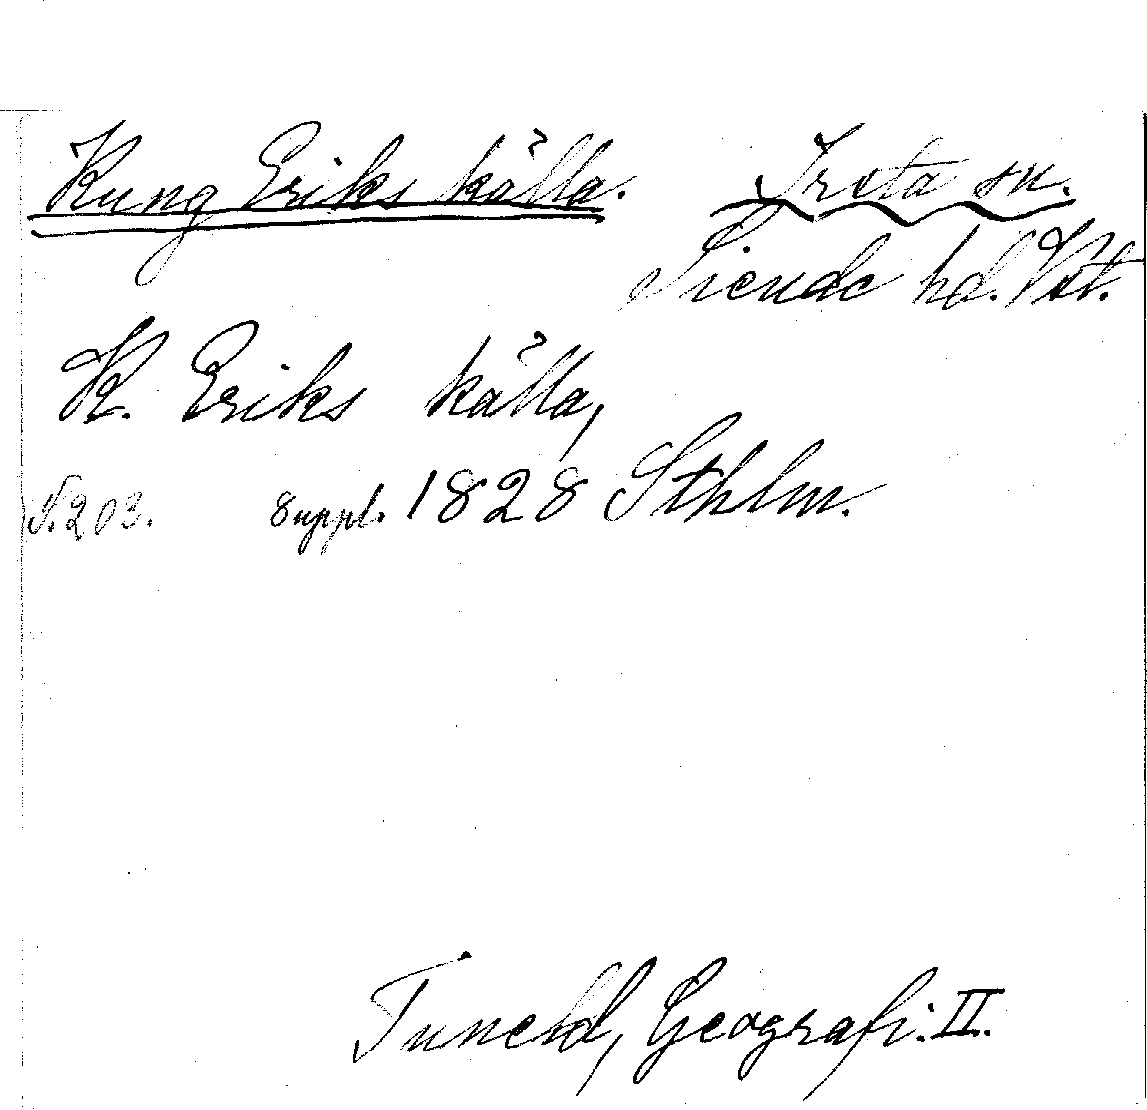 Kung Eriks källa. Irsta sn.
Siende hd. Vstl.
K. Eriks källa,
S. 203. Suppl. 1828 Sthlm.
Tuneld, Geografi. II.